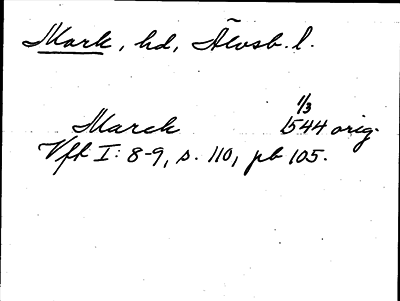 Mark, hd, Älvsb. l.
1/3
Marck 1544 orig.
Vft I: 8-9, s. 110, pb 105.